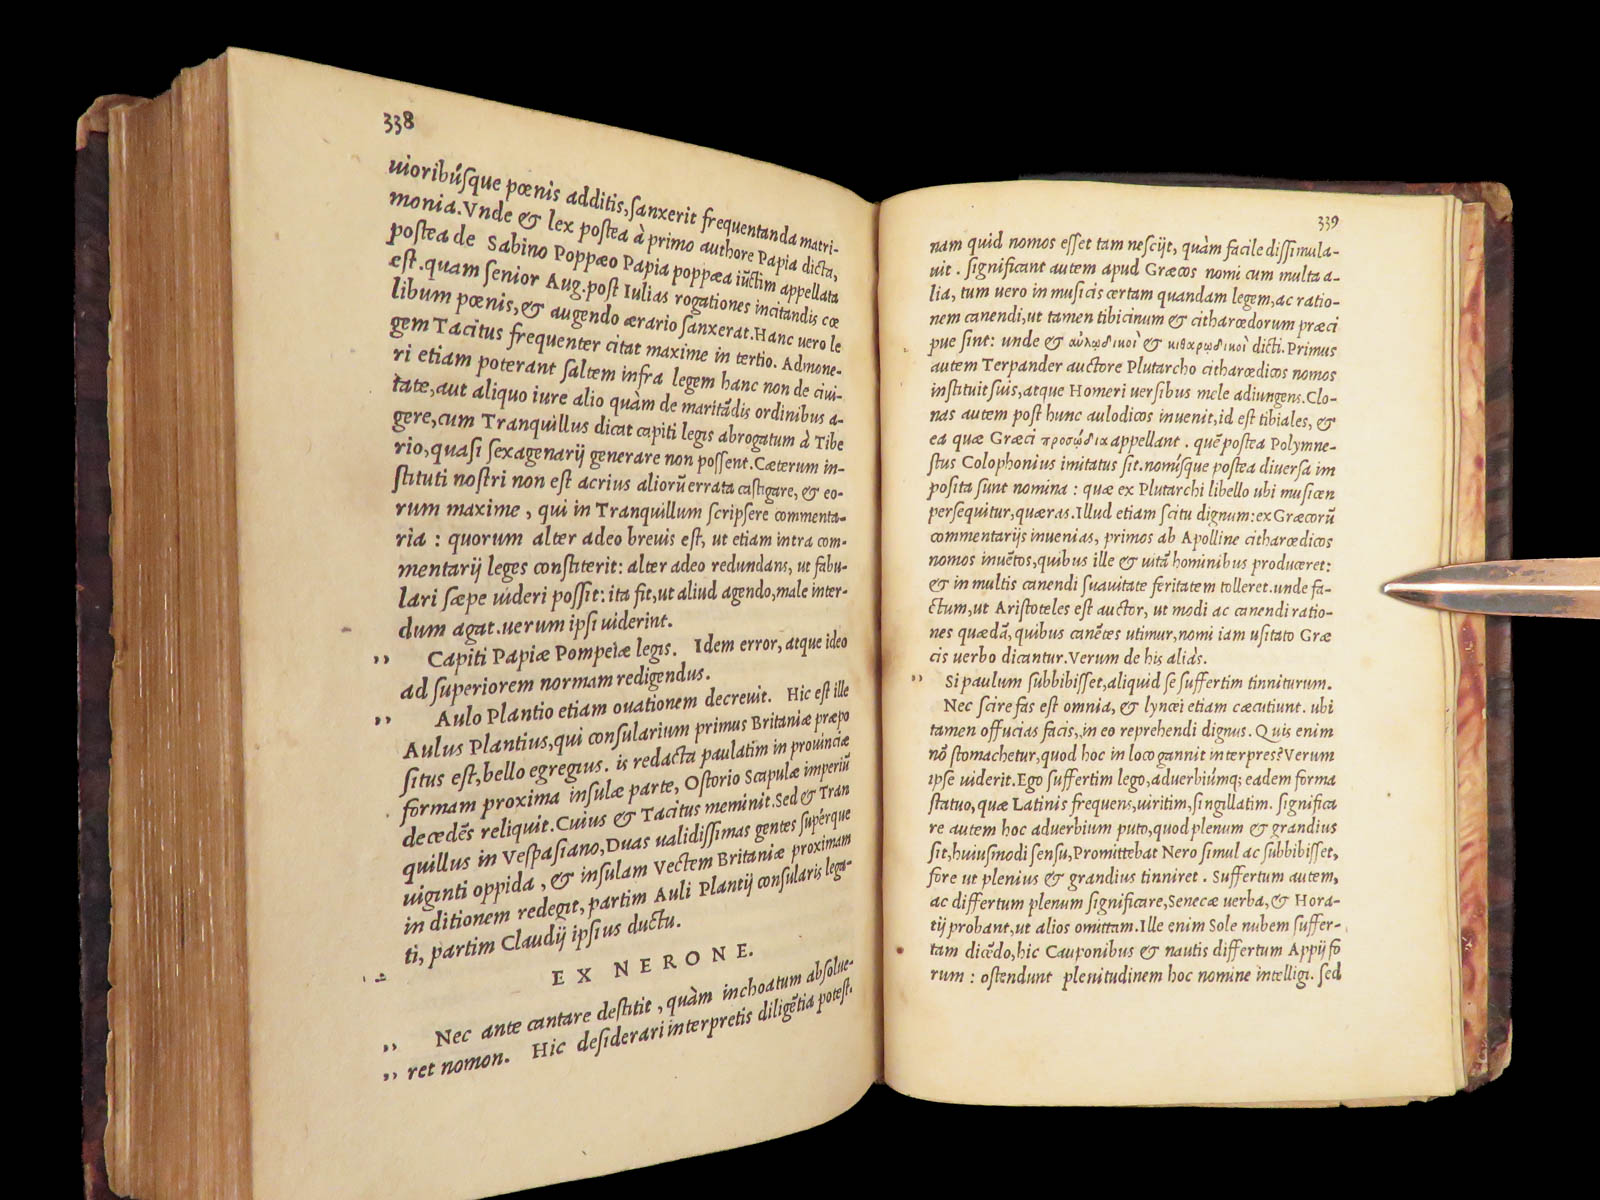 338
uioribúsque pœnis additis, sanxerit frequentanda matri-
monia. Vnde & lex postea à primo authore Papia dicta,
postea de Sabino Poppæo Papia poppæa iūctim appellata
est. quam senior Aug. post Iulias rogationes incitandis cœ
libum pœnis, & augendo ærario sanxerat. Hanc uero le
gem Tacitus frequenter citat maxime in tertio. Admone-
ri etiam poterant saltem infra legem hanc non de ciui-
tate, aut aliquo iure alio quàm de maritādis ordinibus a-
gere, cum Tranquillus dicat capiti legis abrogatum à Tibe
rio, quasi sexagenarij generare non possent. Cæterum in-
stituti nostri non est acrius aliorū errata castigare, & eo-
rum maxime, qui in Tranquillum scripsere commenta-
ria : quorum alter adeo breuis est, ut etiam intra com-
mentarij leges constiterit: alter adeo redundans, ut fabu-
lari sæpe uideri possit: ita fit, ut aliud agendo, male inter-
dum agat. uerum ipsi uiderint.
,, Capiti Papiæ Pompeiæ legis. Idem error, atque ideo
ad superiorem normam redigendus.
,, Aulo Plantio etiam ouationem decreuit. Hic est ille
Aulus Plantius, qui consularium primus Britaniæ præpo
situs est, bello egregius. is redacta paulatim in prouinciæ
formam proxima insulæ parte, Ostorio Scapulæ imperiū
decedēs reliquit. Cuius & Tacitus meminit. Sed & Tran
quillus in Vespasiano, Duas ualidissimas gentes supérque
uiginti oppida, & insulam Vectem Britaniæ proximam
in ditionem redegit, partim Auli Plantij consularis lega-
ti, partim Claudij ipsius ductu.
EX NERONE.
,, Nec ante cantare destitit, quàm inchoatum absolue-
,, ret nomon. Hic desiderari interpretis diligētia potest.
339
nam quid nomos esset tam nescijt, quàm facile dissimula-
uit. significant autem apud Græcos nomi cum multa a-
lia, tum uero in musicis certam quandam legem, ac ratio-
nem canendi, ut tamen tibicinum & citharœdorum præci
pue sint: unde & αὐλῳδικοὶ & κιθαρῳδικοὶ dicti. Primus
autem Terpander auctore Plutarcho citharœdicos nomos
instituit suis, atque Homeri uersibus mele adiungens. Clo-
nas autem post hunc aulodicos inuenit, id est tibiales, &
ea quæ Græci προσῴδια appellant. quē postea Polymne-
stus Colophonius imitatus sit. nomísque postea diuersa im
posita sunt nomina : quæ ex Plutarchi libello ubi musicen
persequitur, quæras. Illud etiam scitu dignum: ex Græcorū
commentarijs inuenias, primos ab Apolline citharœdicos
nomos inuētos, quibus ille & uitā hominibus produceret:
& in multis canendi suauitate feritatem tolleret. unde fa-
ctum, ut Aristoteles est auctor, ut modi ac canendi ratio-
nes quædā, quibus canētes utimur, nomi iam usitato Græ
cis uerbo dicantur. Verum de his aliàs.
,, Si paulum subbibisset, aliquid se suffertim tinniturum.
Nec scire fas est omnia, & lyncei etiam cæcutiunt. ubi
tamen offucias facis, in eo reprehendi dignus. Quis enim
nō stomachetur, quod hoc in loco gannit interpres? Verum
ipse uiderit. Ego suffertim lego, aduerbiúmq; eadem forma
statuo, quæ Latinis frequens, uiritim, singillatim. significa
re autem hoc aduerbium puto, quod plenum & grandius
sit, huiusmodi sensu, Promittebat Nero simul ac subbibisset,
fore ut plenius & grandius tinniret. Suffertum autem,
ac differtum plenum significare, Senecæ uerba, & Hora-
tij probant, ut alios omittam. Ille enim Sole nubem suffer-
tam dicēdo, hic Cauponibus & nautis differtum Appij fo
rum : ostendunt plenitudinem hoc nomine intelligi. sed